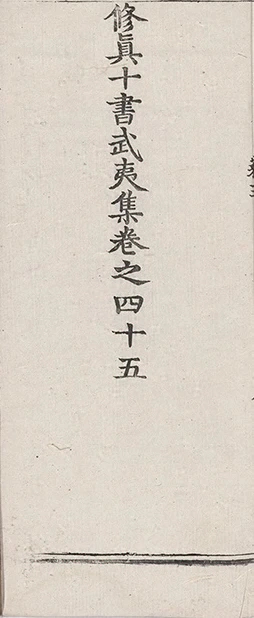 修眞十書武夷集卷之四十五